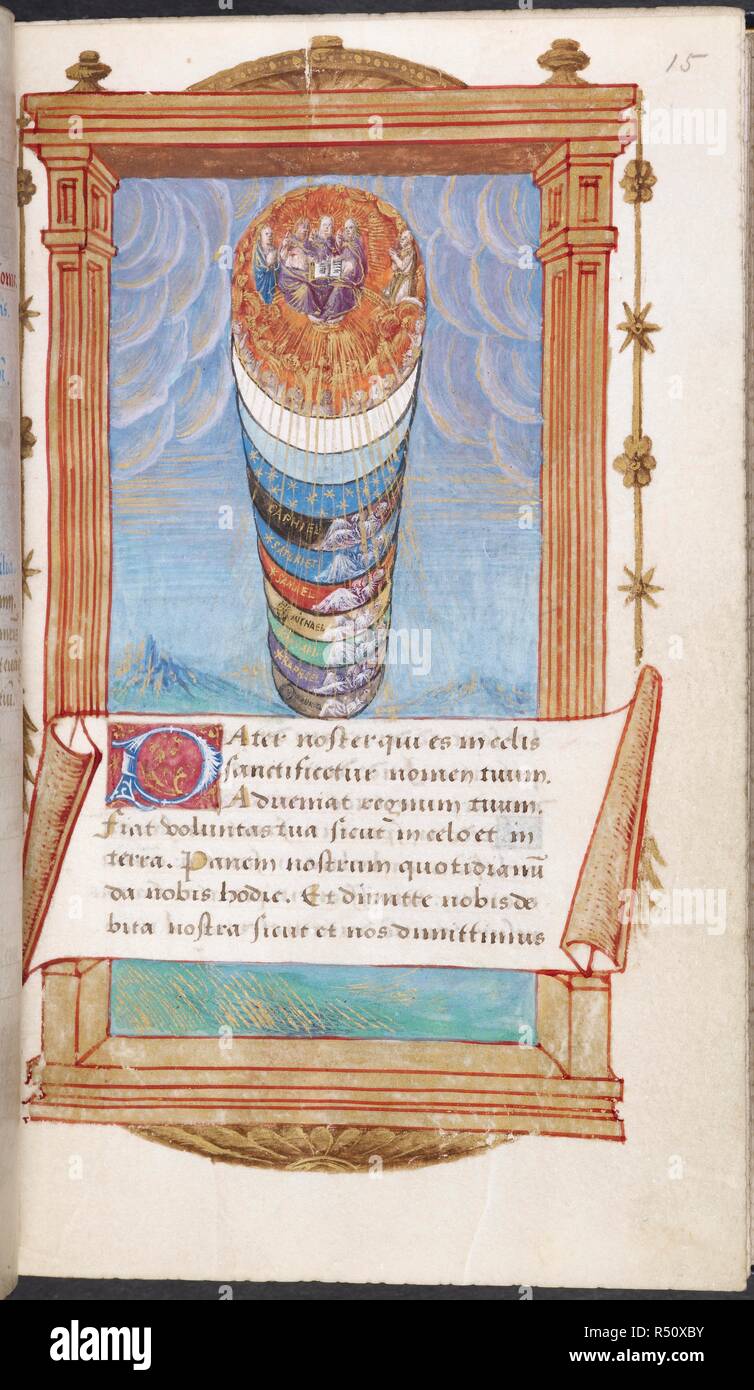 15
CAPHIEL
SATQUIEL
SAMAEL
MICHAEL
RAPHIEL
PAter noster qui es in celis
sanctificetur nomen tuum.
Adueniat regnum tuum.
Fiat voluntas tua sicut in celo et in
terra. Panem nostrum quotidianū
da nobis hodie. Et dimitte nobis de
bita nostra sicut et nos dimittimus
alamy
alamy
Image ID: R50XBY
www.alamy.com